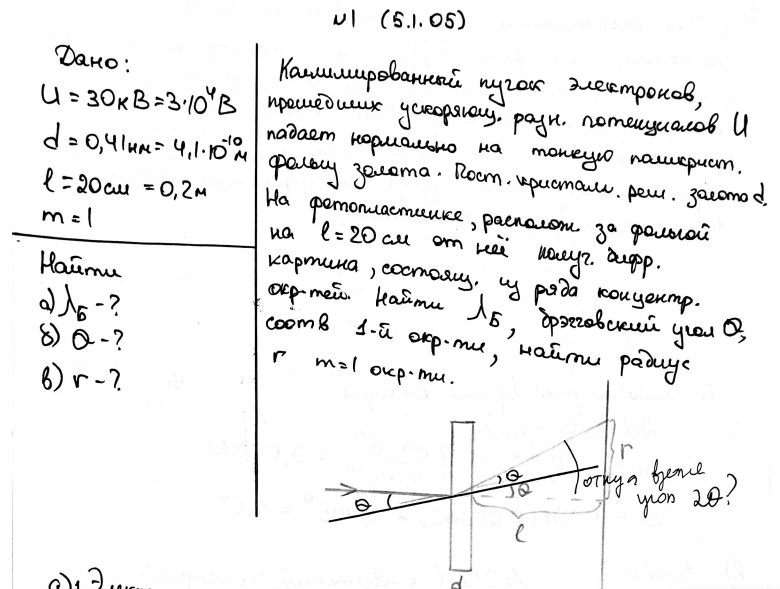 №1 (5.1.05)
Дано:
U = 30кВ = 3·10⁴В
d = 0,41нм = 4,1·10⁻¹⁰м
l = 20см = 0,2м
m = 1
Найти
а) λ_Б - ?
б) Θ - ?
в) r - ?
Коллимированный пучок электронов,
прошедших ускоряющ. разн. потенциалов U
падает нормально на тонкую поликрист.
фольгу золота. Пост. кристалл. реш. золота d.
На фотопластинке, располож. за фольгой
на l = 20см от неё получ. дифр.
картина, состоящ. из ряда концентр.
окр-тей. Найти λ_Б, брэгговский угол Θ,
соотв 1-й окр-ти, найти радиус
r m=1 окр-ти.
Θ
Θ
Θ
r
l
d
откуда взяли
угол 2Θ?